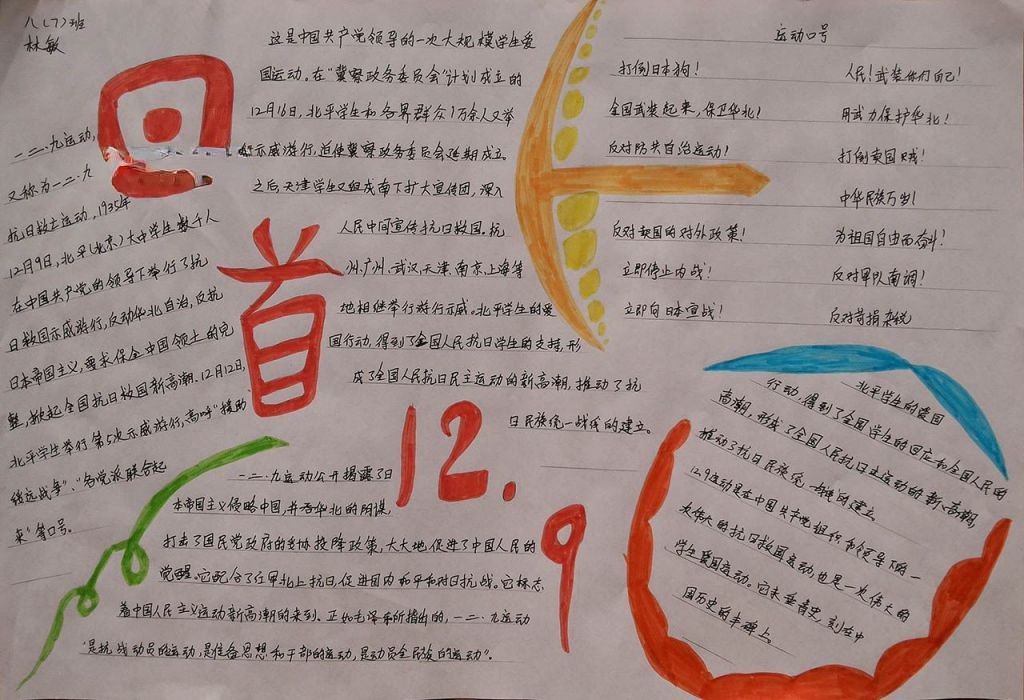 八(7)班
林敏
回首
12.9
一二·九运动,
又称为一二·九
抗日救亡运动,1935年
12月9日,北平(北京)大中学生数千人
在中国共产党的领导下举行了抗
日救国示威游行,反动华北自治,反抗
日本帝国主义,要求保全中国领土的完
整,掀起全国抗日救国新高潮.12月12日,
北平学生举行第5次示威游行,高呼“援助
绥远战争”、“各党派联合起
来”等口号。
这是中国共产党领导的一次大规模学生爱
国运动。在“冀察政务委员会”计划成立的
12月16日,北平学生和各界群众1万余人又举
示威游行,迫使冀察政务委员会延期成立。
之后,天津学生又组成南下扩大宣传团,深入
人民中间宣传抗日救国。杭
州、广州、武汉、天津、南京、上海等
地相继举行游行示威。北平学生的爱
国行动,得到了全国人民抗日学生的支持,形
成了全国人民抗日民主运动的新高潮,推动了抗
日民族统一战线的建立。
运动口号
打倒日本狗!
全国武装起来,保卫华北!
反对防共自治运动!
反对卖国的对外政策!
立即停止内战!
立即向日本宣战!
人民!武装你们自己!
用武力保护华北!
打倒卖国贼!
中华民族万岁!
为祖国自由而奋斗!
反对军队南调!
反对苛捐杂税
一二·九运动公开揭露了日
本帝国主义侵略中国,并吞华北的阴谋,
打击了国民党政府的妥协投降政策,大大地促进了中国人民的
觉醒。它配合了红军北上抗日,促进国内和平和对日抗战。它标志
着中国人民主义运动新高潮的来到。正如毛泽东所指出的,一二·九运动
“是抗战动员的运动,是准备思想和干部的运动,是动员全民族的运动”。
北平学生的爱国
行动,得到了全国学生的回应和全国人民的
高潮,形成了全国人民抗日主运动的新高潮,
推动了抗日民族统一战线的建立。
12.9运动是在中国共产党组织和领导下的一
次伟大的抗日救国运动也是一次伟大的
学生爱国运动。它永垂青史,刻在中
国历史的丰碑上。